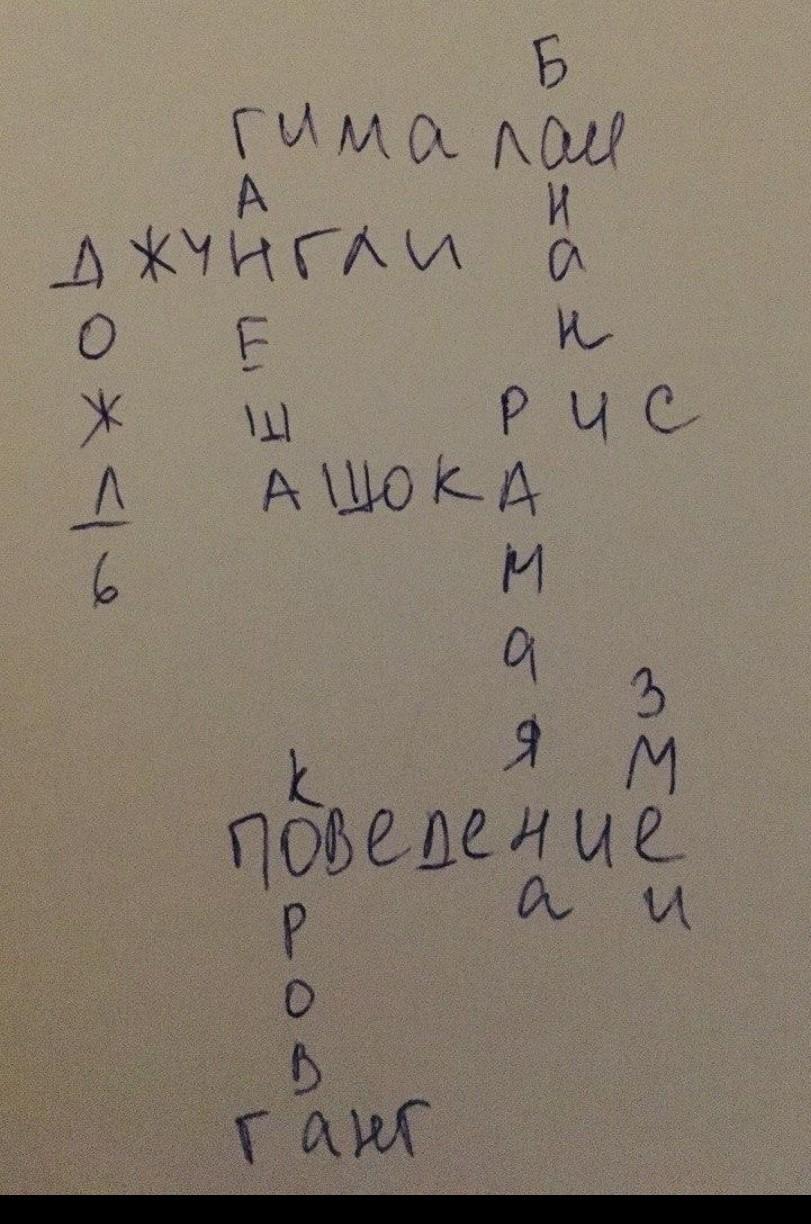 Б
ГИМАЛАИ
А Н
ДЖУНГЛИ а
О Е Н
Ж Ш РИС
Л АШОКА
Ь М
а
Я З
К М
ПОВЕДЕНИЕ
Р а и
О
В
ГАНГ